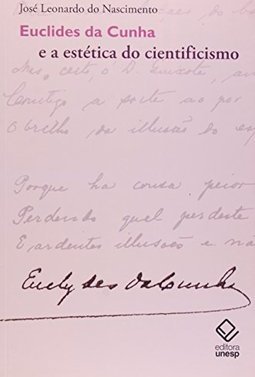 José Leonardo do Nascimento
Euclides da Cunha
e a estética do cientificismo
Mas, certo, o D. Quixote,
Comtigo a sorte ao por
O brilho da illusão do
Porque ha cousa peior
Perdendo qual perdeste
E, ardentes illusões e na
Euclydes da Cunha
editora
unesp